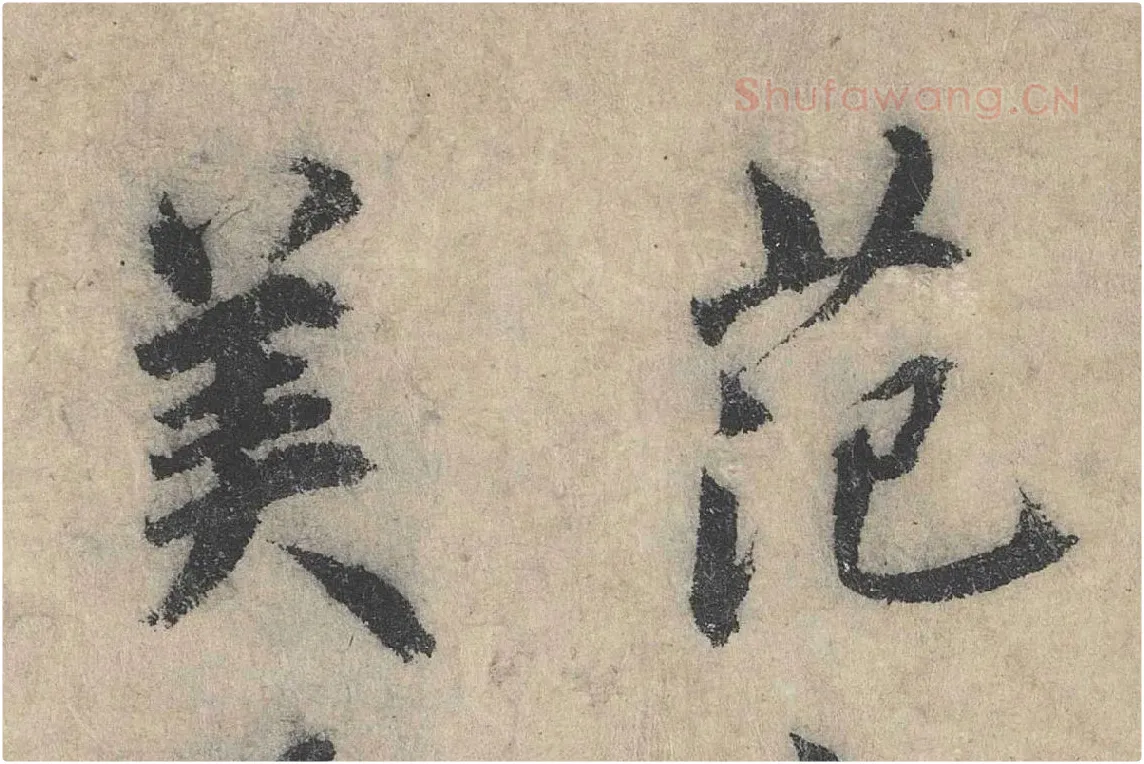 Shufawang.CN
范
美